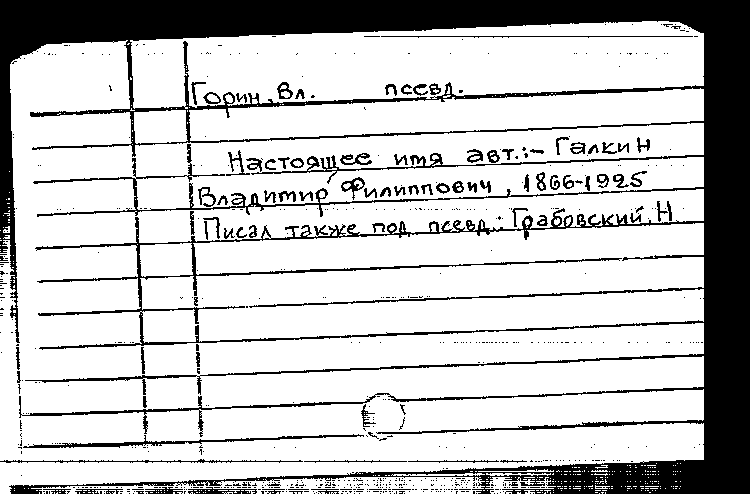 Горин, Вл. псевд.
Настоящее имя авт.:- Галкин
Владимир Филиппович, 1866-1925
Писал также под псевд.: Грабовский, Н